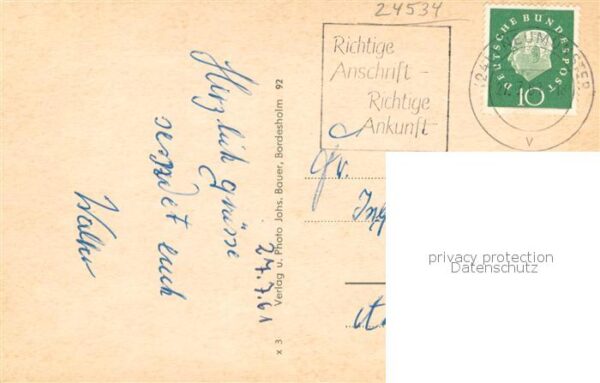 24534
Richtige
Anschrift -
Richtige
Ankunft
DEUTSCHE BUNDESPOST
10
(24
NEUMÜNSTER
v
Herzlich grüsse
sendet euch
Walter
27.7.61
Verlag u. Photo Johs. Bauer, Bordesholm 92
x 3
privacy protection
Datenschutz